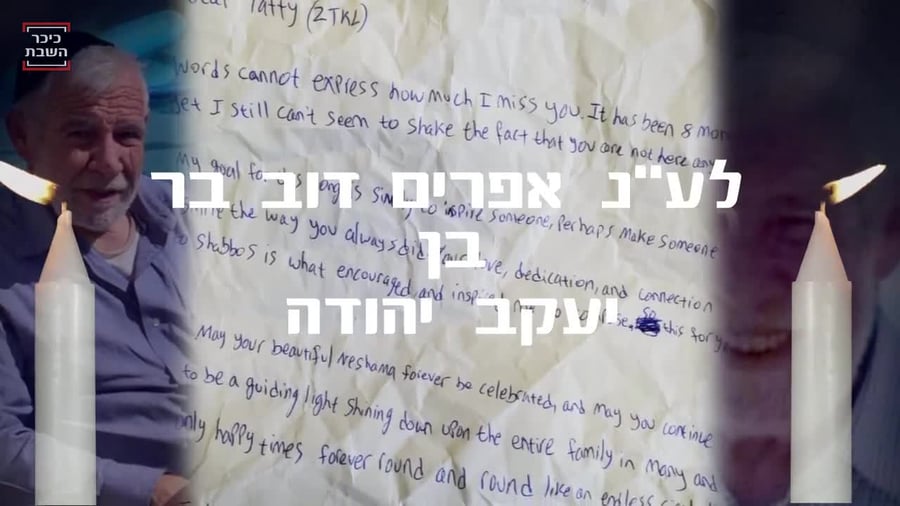 כיכר
השבת
Dear Tatty (ZTKL)
Words cannot express how much I miss you. It has been 8
yet I still can't seem to shake the fact that you are not here
לע"נ אפרים דוב בר
בן
יעקב יהודה
My goal for this song is simply to inspire someone, perhaps make someone
the way you always did. Your love, dedication, and connection
to Shabbos is what encouraged and inspired so this for
May your beautiful Neshama forever be celebrated, and may you continue
to be a guiding light shining down upon the entire family in many and
only happy times forever round and round like an endless